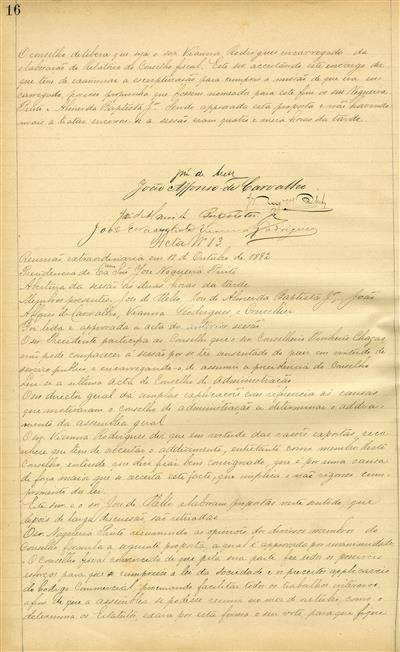 16
O conselho delibera que seja o snr Vianna Rodrigues encarregado da
elaboração do Relatorio do Conselho fiscal. Este snr acceitando este encargo de
que tem de examinar a escripturação para cumprir a missão de que era en-
carregado, propunha que fossem nomeados para este fim os snrs Nogueira
Pinto e Almeida Baptista Jor. Sendo approvada esta proposta e não havendo
mais a tratar encerrou-se a sessão eram quatro e meia horas da tarde.
José de Mello
João Affonso de Carvalho
José d'Almeida Baptista Jr
João Evangelista Vianna Rodrigues
Acta Nº 13.
Reunião extraordinaria em 12 de Outubro de 1892
Presidencia do Exmo Snr José Nogueira Pinto
Abertura da sessão ás duas horas da tarde
Membros presentes, José de Mello, José de Almeida Baptista Jor, João
Affonso de Carvalho, Vianna Rodrigues, e
Foi lida e approvada a acta da anterior sessão
O snr Presidente participa ao Conselho que o snr Conselheiro Pinheiro Chagas
não pode comparecer á sessão por se ter ausentado do paiz em virtude de
serviço publico, e encarregando-o de assumir a presidencia do Conselho
Leu-se a ultima acta do Conselho de Administração
O snr director geral dá amplas explicações com referencia ás causas
que motivaram o conselho de administração a determinar o addia-
mento da assemblea geral
O snr Vianna Rodrigues diz que em virtude das rasões expostas, reco-
nhece que tem de acceitar o addiamento, entretanto como membro deste
Conselho, entende que deve ficar bem consignado, que é por uma causa
de força maior que se acceita este facto, que implica o não rigoroso cum-
primento da lei.
Este snr. e o snr José de Mello elaboram propostas neste sentido, que
depois de larga discussão, são retiradas
O snr Nogueira Pinto resumindo as opiniões dos diversos membros do
Conselho formula a seguinte proposta a qual é approvada por unanimidade
"O Conselho fiscal convencido de que pela sua parte fez todos os possiveis
esforços para que se cumprisse a lei da sociedade e os preceitos applicaveis
do Codigo Commercial, procurando facilitar todos os trabalhos
afim de que a assemblea se podesse reunir no mez de outubro, como o
determina os Estatutos, exara por esta forma o seu voto para que fique